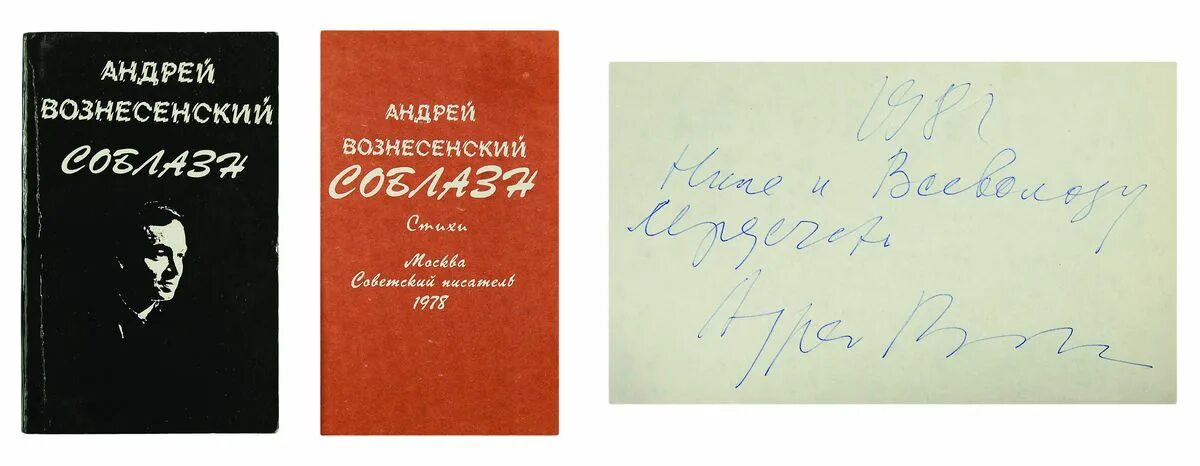 АНДРЕЙ
ВОЗНЕСЕНСКИЙ
СОБЛАЗН
АНДРЕЙ
ВОЗНЕСЕНСКИЙ
СОБЛАЗН
Стихи
Москва
Советский писатель
1978
1982
Нине и Всеволоду
сердечно
Андрей